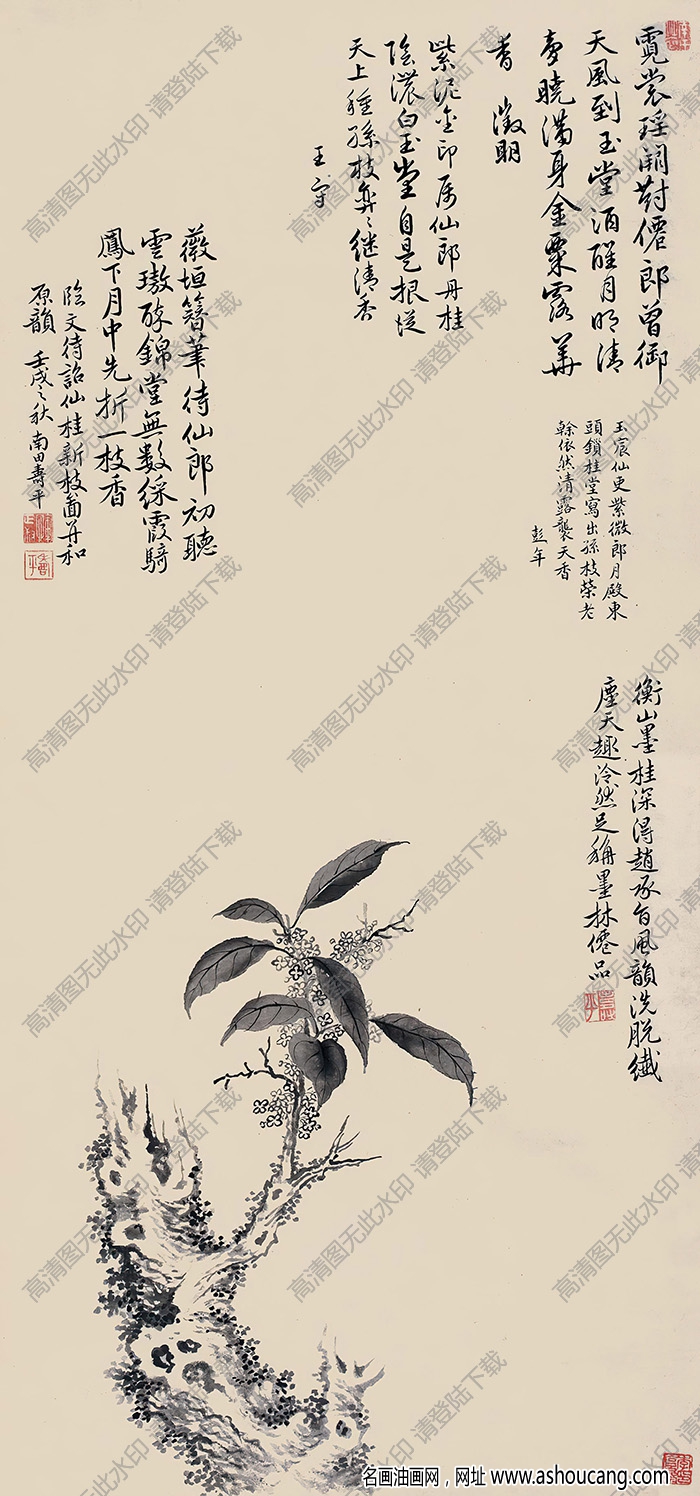 霓裳瑶阙對僊郎曾御
天風到玉堂酒醒月明清
夢曉滿身金粟露華
香 徵明
紫泥金印屬仙郎丹桂
陰濃白玉堂自是根從
天上種孫枝奕々繼清香
王守
玉宸仙吏紫微郎月殿東
頭鎖桂堂寫出孫枝榮老
榦依然清露襲天香
彭年
薇垣簪筆待仙郎初聽
雲璈醉錦堂無數綵霞騎
鳳下月中先折一枝香
臨文待詔仙桂新枝圖并和
原韻 壬戌之秋南田壽平
衡山墨桂深得趙承旨風韻洗脫纖
塵天趣泠然足稱墨林僊品
高清图无此水印 请登陆下载
名画油画网，网址 www.ashoucang.com